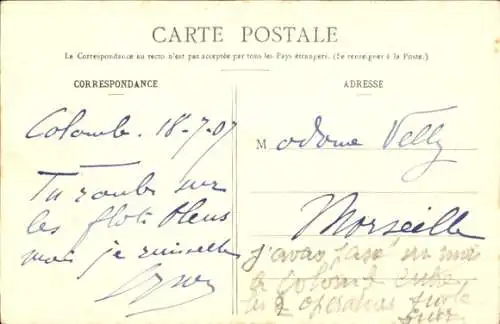 CARTE POSTALE
La Correspondance au recto n'est pas acceptée par tous les Pays étrangers. (Se renseigner à la Poste.)
CORRESPONDANCE
Colombo. 18-7-07
Tu roules sur
les flots bleus
moi je ruisselle
ADRESSE
Madame Velly
Marseille
j'avais passé un mois
à Colombo entre
les 2 opérations sur le